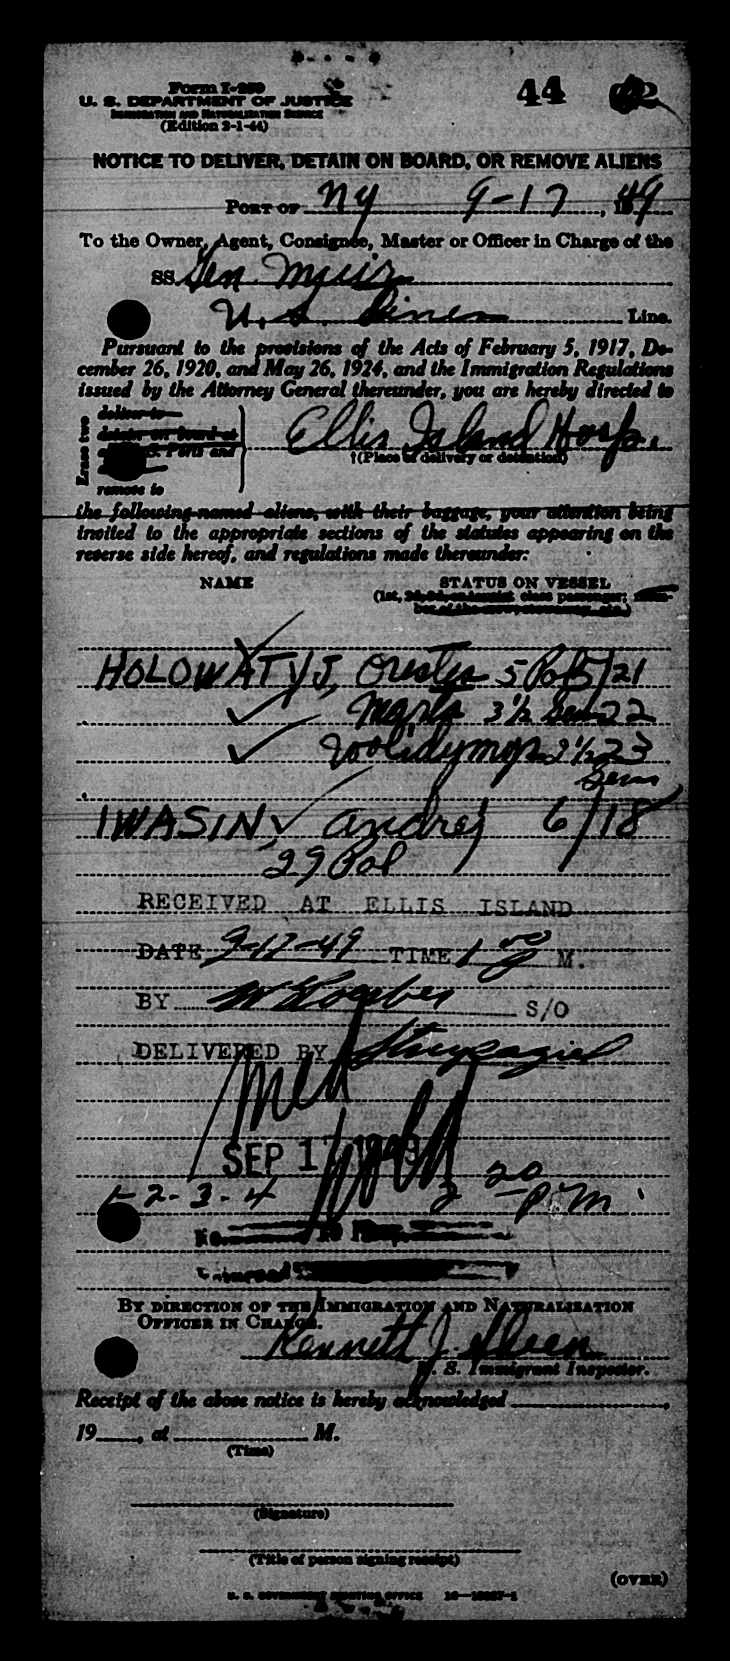 Form I-259
U. S. DEPARTMENT OF JUSTICE
IMMIGRATION AND NATURALIZATION SERVICE
(Edition 3-1-44)
44
NOTICE TO DELIVER, DETAIN ON BOARD, OR REMOVE ALIENS
PORT OF NY 9-17, 1949
To the Owner, Agent, Consignee, Master or Officer in Charge of the
SS. Gen. Muir
U. S. Lines Line.
Pursuant to the provisions of the Acts of February 5, 1917, De-
cember 26, 1920, and May 26, 1924, and the Immigration Regulations
issued by the Attorney General thereunder, you are hereby directed to
Erase two
deliver to
detain on board at
Ports and
remove to
Ellis Island Hosp.
†(Place of delivery or detention)
the following-named aliens, with their baggage, your attention being
invited to the appropriate sections of the statutes appearing on the
reverse side hereof, and regulations made thereunder:
NAME STATUS ON VESSEL
(1st, 2d, 3d, or tourist class passenger; mem-
ber of the crew, stowaway, etc.)
HOLOWATYJ, Orestes 5 Pol 5/21
Marta 3½ Sem 22
Wolidymyr 2½ 23
Sem
IWASIN, Andrej 6/18
29 Pol
RECEIVED AT ELLIS ISLAND
DATE 9-17-49 TIME 1 00 P M.
BY S/O
DELIVERED BY
Med
SEP 17 1949
1-2-3-4 2 20 P.M.
No.
BY DIRECTION OF THE IMMIGRATION AND NATURALIZATION
OFFICER IN CHARGE.
Kenneth J.
U. S. Immigrant Inspector.
Receipt of the above notice is hereby acknowledged,
19, at M.
(Time)
(Signature)
(Title of person signing receipt)
(OVER)
U. S. GOVERNMENT PRINTING OFFICE